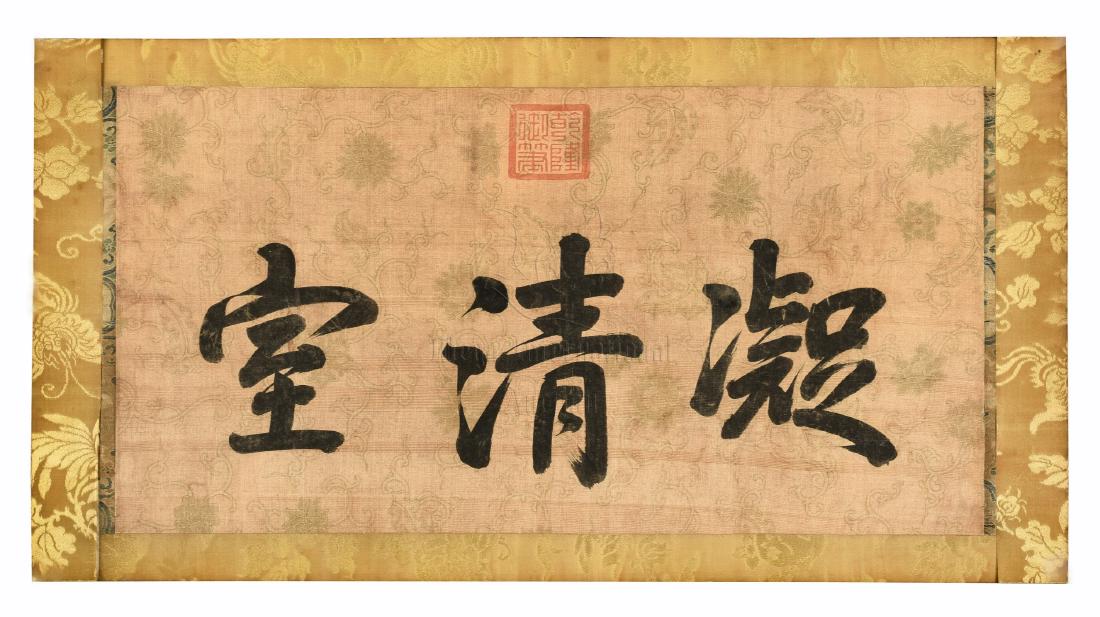 凝清室
乾隆御筆